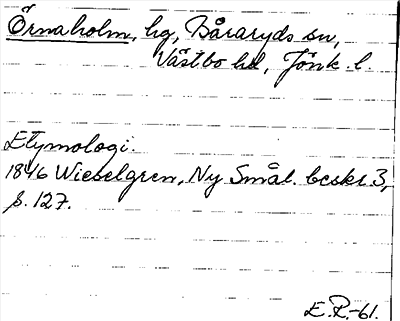 Örnaholm, hg, Båraryds sn,
Västbo hd, Jönk. l.
Etymologi.
1846 Wieselgren, Ny Smål. beskr. 3,
s. 127.
E.R.-61.